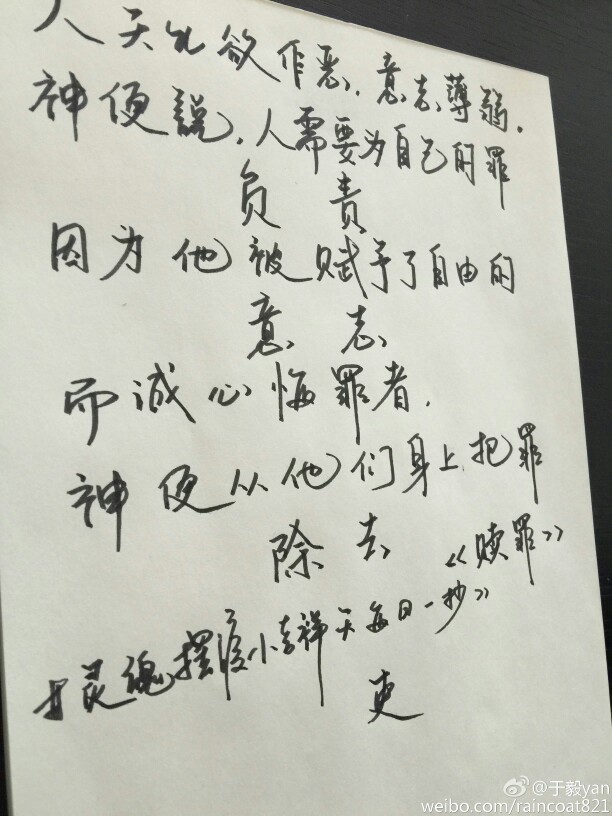 人天欲作恶，意志薄弱，
神便說，人需要为自己的罪
负责
因为他被赋予了自由的
意志
而诚心悔罪者，
神便从他们身上把罪
除去
《赎罪》
灵魂摆渡小吉祥天每日一抄》
@于毅yan
weibo.com/raincoat821